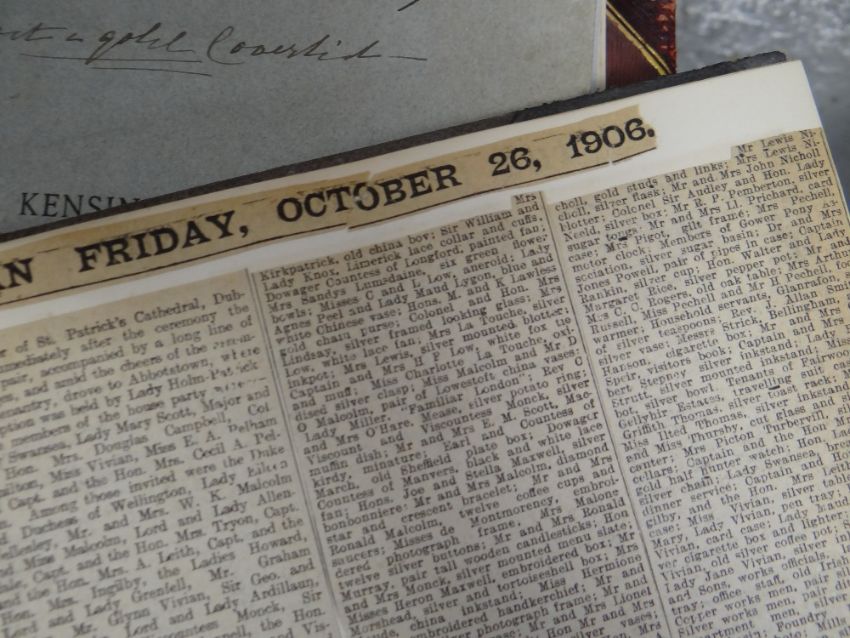 a gold Coverlid
KENSIN
AN FRIDAY, OCTOBER 26, 1906.
of St. Patrick's Cathedral, Dub-
mmediately after the ceremony the
pair, accompanied by a long line of
and amid the cheers of the
drove to Abbotstown, where
tion was held by Lady Holm-Patrick
members of the house party
Swansea, Lady Mary Scott, Major and
Hon. Mrs. Douglas Campbell, Col
Miss Vivian, Miss E. A. Pelham
Capt. and the Hon. Mrs. Cecil A. Pel-
Among those invited were the Duke
Duchess of Wellington, Lady
Mr. and Mrs. W. K. Malcolm
Miss Malcolm, Lord and Lady Allen-
Capt. and the Hon. Mrs. Tryon, Capt.
and the Hon. A. Leith, Capt. and the
Hon. Mrs. Ingilby, the Ladies Howard,
Lord and Lady Grenfell, Mr. Graham
Glynn Vivian, Sir Geo. and
Lord and Lady Ardilaun,
Monck, Sir
the Hon.
Mrs
Kirkpatrick, old china boy; Sir William and
Lady Knox, Limerick lace collar and cuffs;
Dowager Countess of Longford, painted fan;
Mrs Sandys Lumsdaine, six green flower
bowls; Misses C and L Low, aneroid; Lady
Agnes Peel and Lady Maud Lygon, blue and
white Chinese vase; Hons. M. and K Lawless
gold chain purse; Colonel and Hon. Mrs
Lindsay, silver framed looking glass; Mrs
Low, white lace fan; Mrs La Touche, silver
inkpot; Mrs Lewis, silver mounted blotter;
Captain and Mrs H P Low, white fox tie
and muff; Miss Charlotte La Touche, oxi-
dised silver clasp; Miss Malcolm and Mr D
O Malcolm, pair of Lowestoft china vases;
Lady Miller, "Familiar London"; Rev C
and Mrs O'Hare. Mease, silver potato ring;
Viscount and Viscountess Monck, silver
muffin dish; Mr and Mrs E. M. Scott, Mac-
kirdy, minature; Earl and Countess of
March, old Sheffield plate box; Dowager
Countess of Manvers, black and white lace
fan; Hons. Joe and Stella Maxwell, silver
bonbonniere; Mr and Mrs Malcolm, diamond
star and crescent bracelet; Mr and Mrs
Ronald Malcolm, twelve coffee cups and
saucers; Misses de Montmorency, embroi-
dered photograph frame; Mrs Malone
twelve silver buttons; Mr and Mrs Ronald
Murray, pair tall wooden candlesticks; Hon
and Mrs Monck, silver mounted menu slate;
Misses Heron Maxwell, embroidered box; Mr
Morshead, silver and tortoiseshell box; Mrs
china inkstand; Miss Hermione
embroidered handkerchief; Mr and
photograph frame; Mr and
and Mrs Lionel
silver vases;
Mr Lewis Ni-
choll, gold studs and links; Mrs Lewis Ni-
choll, silver flask; Mr and Mrs John Nicholl
blotter; Colonel Sir Audley and Hon. Lady
Neeld, silver box; Mr R. P. Pemberton, silver
sugar tongs; Mr and Mrs Ll. Prichard, card
case; Mrs Pigot, gilt frame; Mrs Pechell,
motor clock; Members of Gower Pony as-
sociation, silver sugar basin; Dr and Mrs
Jones Powell, pair of pipes in case; Captain
Rankin, silver cup; Hon. Walter and Lady
Margaret Rice, silver pepper pot; Mr and
Mrs C. C. Rogers, old oak table; Mrs Arthur
Russell, Miss Pechell and Mr H Pechell, foot
warmer; Household servants, Glanrafon,
of silver teaspoons; Rev. J. Allan Smith
silver vase; Messrs Strick, Bellingham,
Hanson, cigarette box; Mr and Mrs
Speir, visitors book; Captain and Mrs
bert Stepney silver inkstand; Lady
Strutt, silver mounted inkstand; Miss
bot, silver bowl; Tenants of Fairwood
Gellyhir Estates, travelling suit
Griffith Thomas, silver toast rack;
Miss Iltid Thomas, silver inkstand
and Miss Thursby, cut glass and
canter; Mrs Picton Turbervill,
cellars; Captain and the Hon.
gold half hunter watch; Hon.
silver chain; Lady Swansea,
dinner service; Captain and
gilby, and the Hon. Mrs Leith
case; Miss Vivian, silver
Mary, Lady Vivian, pen tray;
Vivian, card case; Lady Maud
ver cigarette box and lighter;
Vivian, old silver coffee pot;
Lady Jane Vivian, silver
and Sons, works officials,
tray; office staff, old Irish
Copper works men, pair
Silver works men, pair